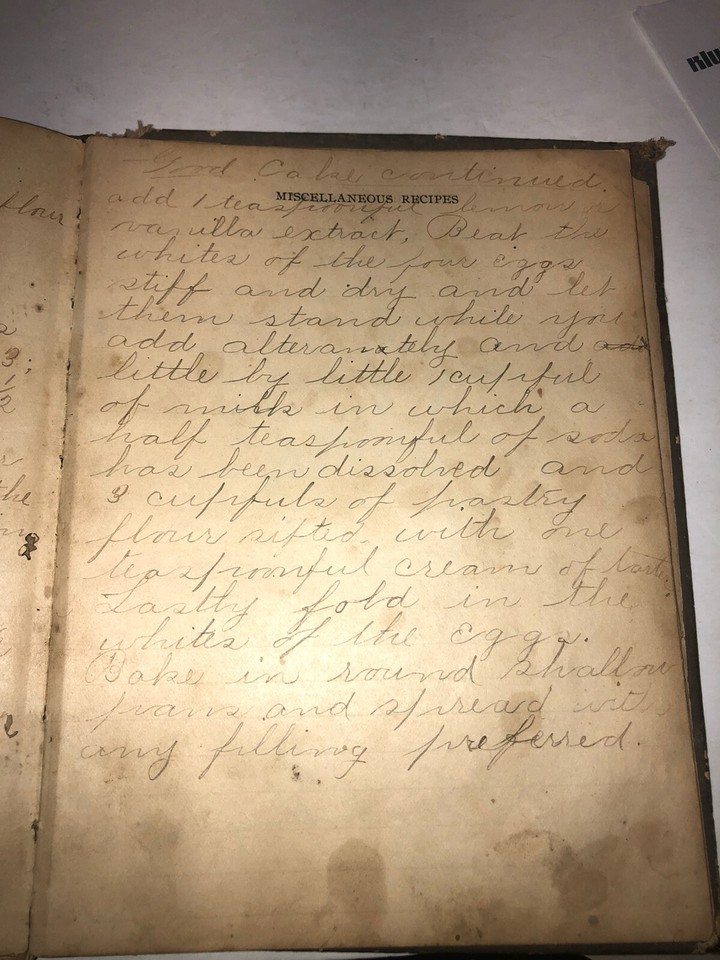 Klu
Good Cake continued.
MISCELLANEOUS RECIPES
add 1 teaspoonful lemon or
vanilla extract, Beat the
whites of the four eggs
stiff and dry and let
them stand while you
add alteranately and add
little by little 1 cupful
of milk in which a
half teaspoonful of soda
has been dissolved and
3 cupfuls of pastry
flour sifted with one
teaspoonful cream of tartar.
Lastly fold in the
whites of the eggs.
Bake in round shallow
pans and spread with
any filling preferred.
flour
3;
1/2
the